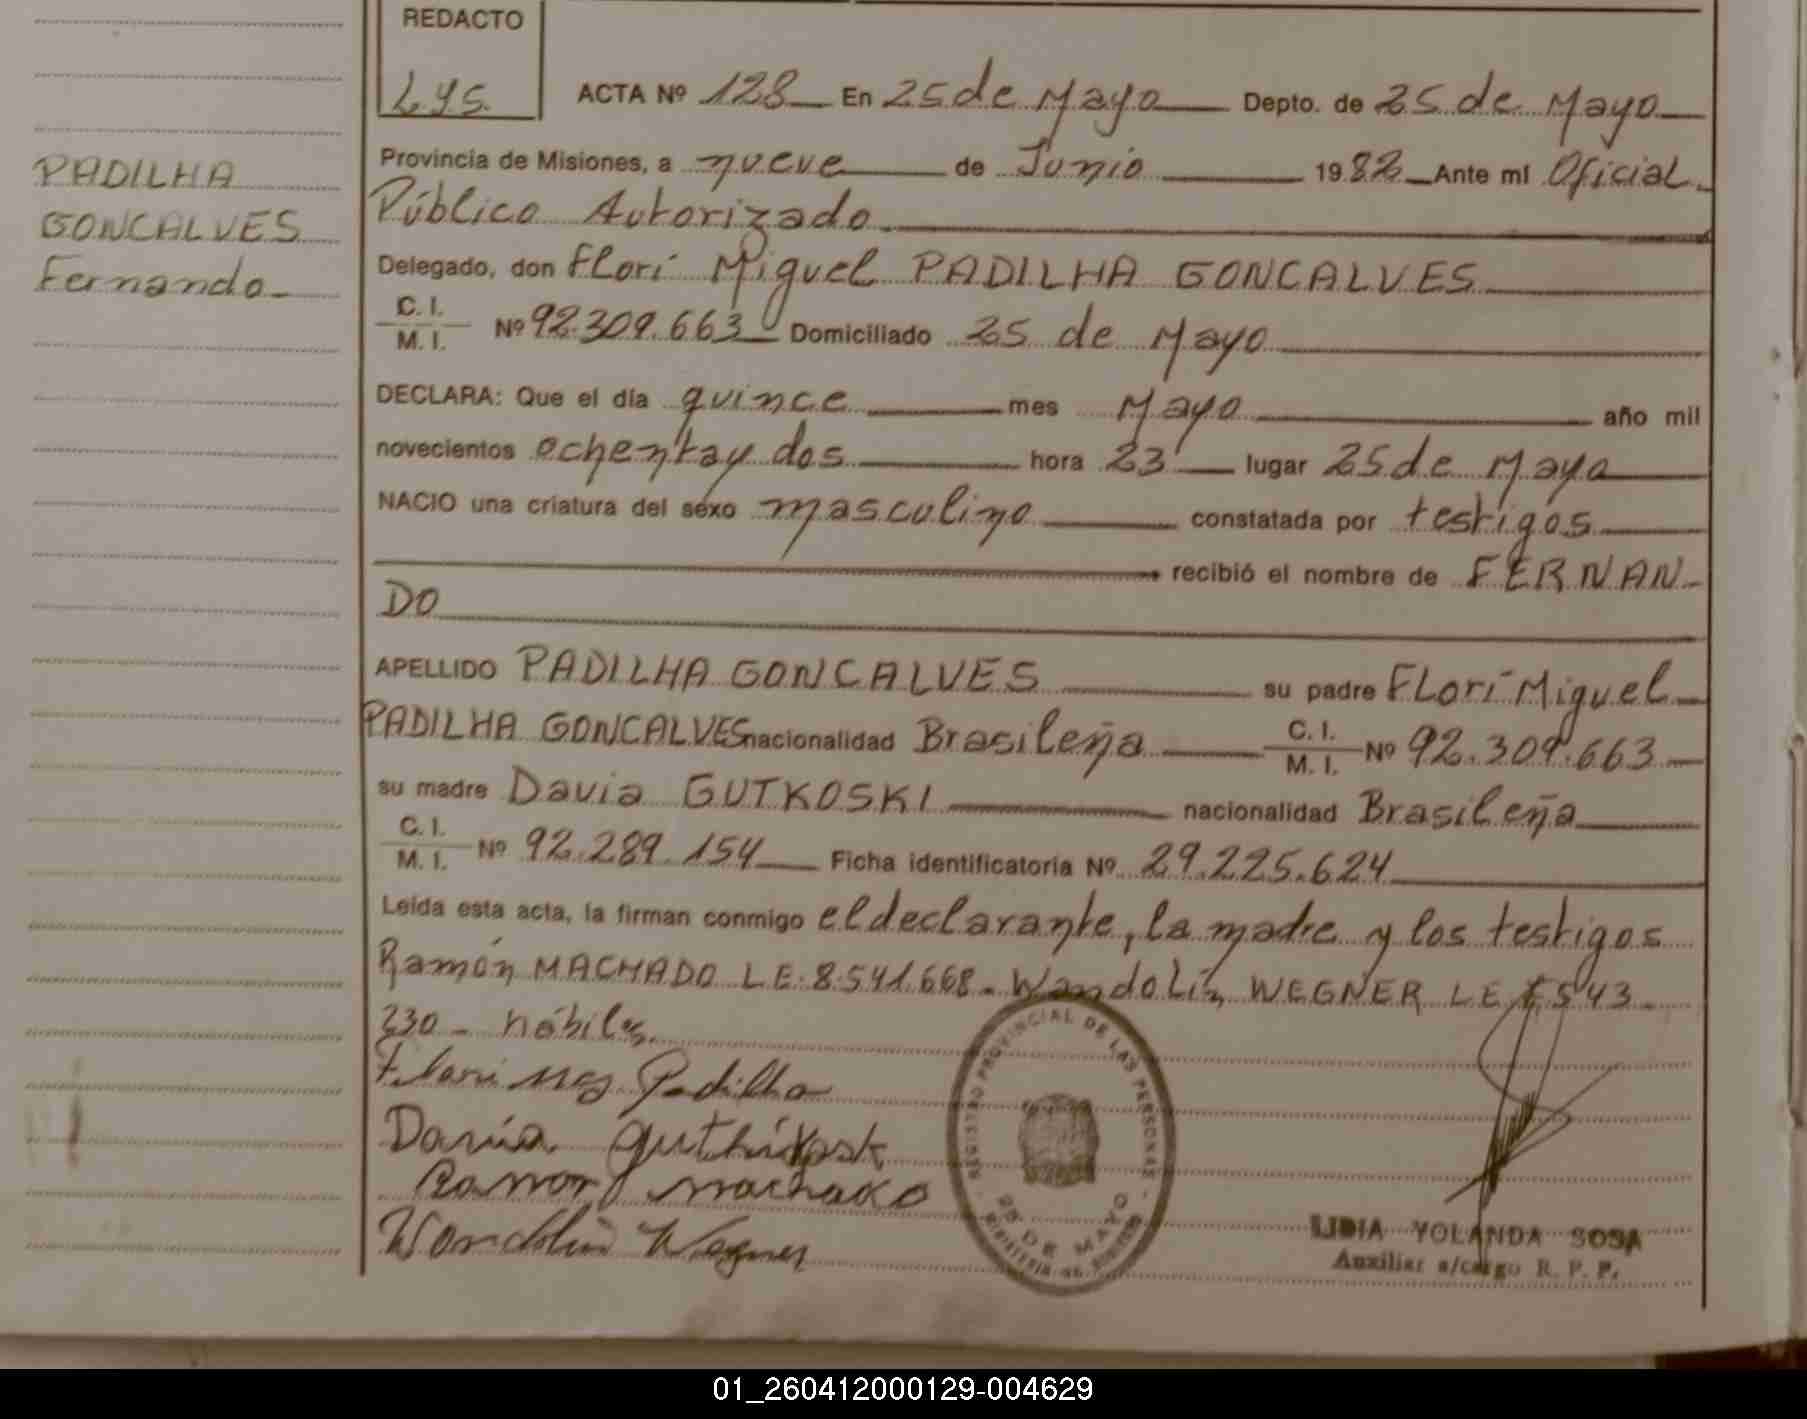 REDACTO
Lys.
ACTA Nº 128 En 25 de Mayo Depto. de 25 de Mayo
Provincia de Misiones, a nueve de Junio 1982 Ante mí Oficial
Público Autorizado
Delegado, don Florí Miguel PADILHA GONCALVES
C. I.
M. I. Nº 92.309.663 Domiciliado 25 de Mayo
DECLARA: Que el día quince mes Mayo año mil
novecientos ochenta y dos hora 23 lugar 25 de Mayo
NACIO una criatura del sexo masculino constatada por testigos
recibió el nombre de FERNAN-
DO
APELLIDO PADILHA GONCALVES su padre FLorí Miguel
PADILHA GONCALVES nacionalidad Brasileña C. I. M. I. Nº 92.309.663
su madre Davia GUTKOSKI nacionalidad Brasileña
C. I.
M. I. Nº 92.289.154 Ficha identificatoria Nº 29.225.624
Leída esta acta, la firman conmigo el declarante, la madre y los testigos
Ramón MACHADO LE: 8.541.668- Wandolín WEGNER LE 543
230 - hábiles.
Padilha
Ramon machado
Wandolin Wegner
PADILHA
GONCALVES
Fernando
REGISTRO PROVINCIAL DE LAS PERSONAS
25 DE MAYO
LIDIA YOLANDA SOSA
Auxiliar a/cargo R. P. P.
01_260412000129-004629